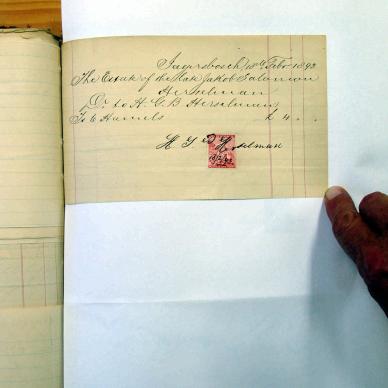 Jagersbosch 18th Febr 1892
The Estate of the late Jakob Salomon
Herselman
Dr. to H. G. B Herselman
To 6 Hamels £ 4 . .
H G B Herselman
18/2/92